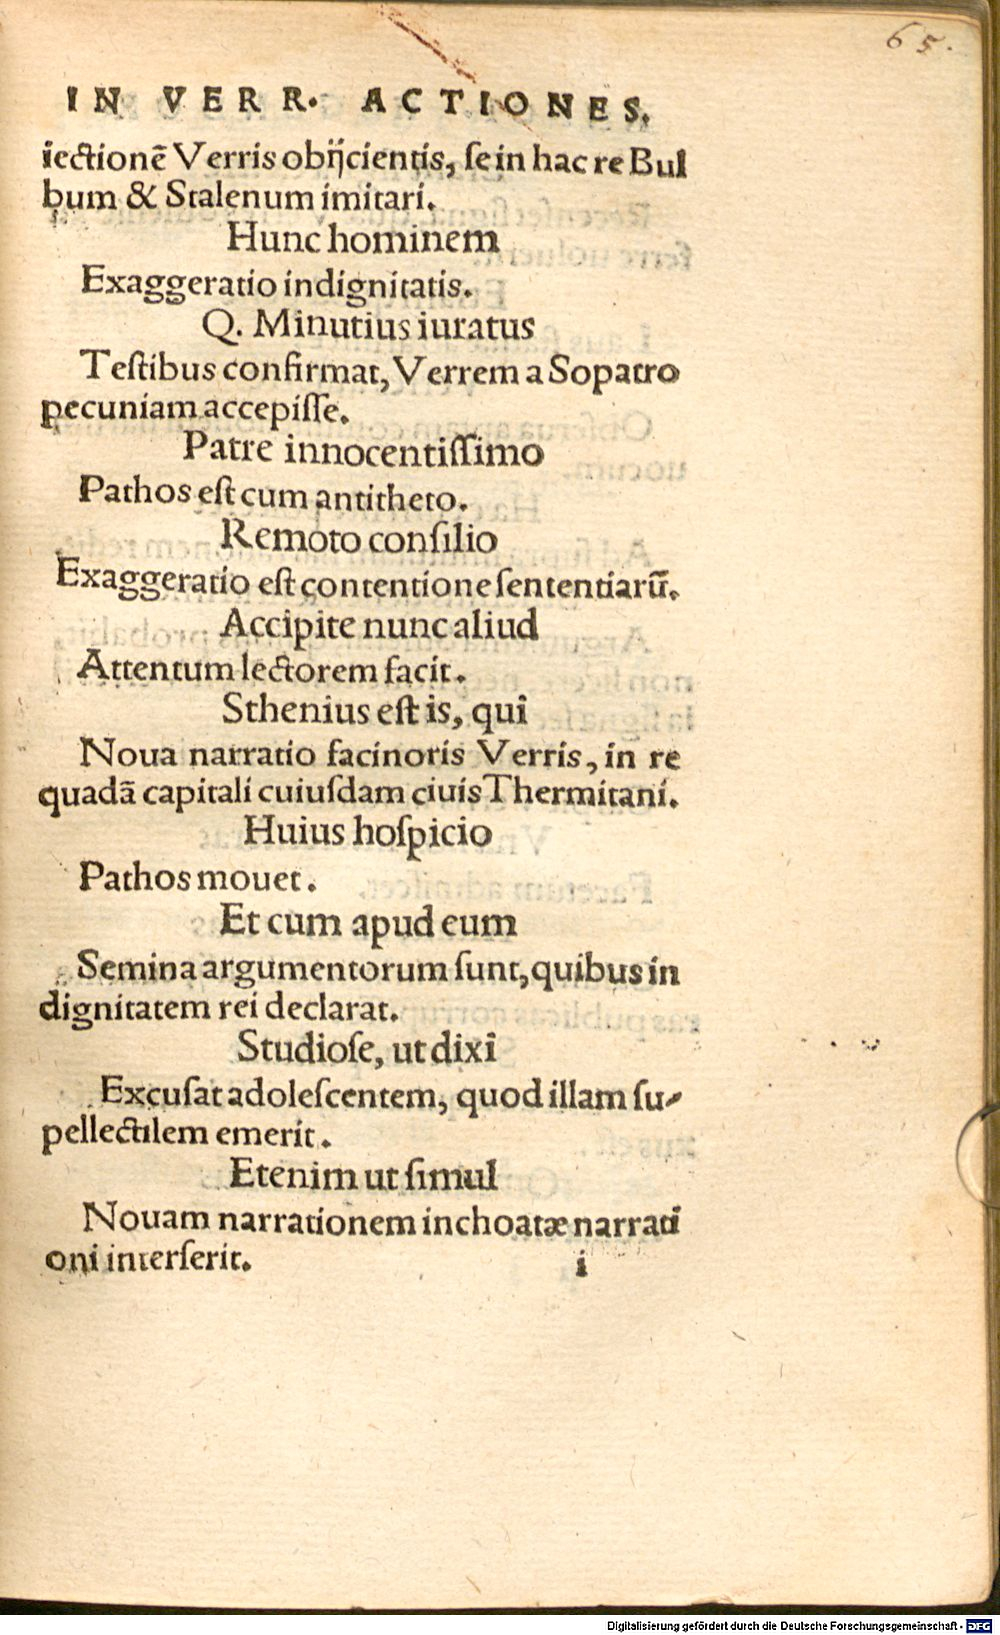 65.
IN VERR. ACTIONES.
iectionē Verris obijcientis, ſe in hac re Bul
bum & Stalenum imitari.
Hunc hominem
Exaggeratio indignitatis.
Q. Minutius iuratus
Teſtibus confirmat, Verrem a Sopatro
pecuniam accepiſſe.
Patre innocentiſſimo
Pathos eſt cum antitheto.
Remoto conſilio
Exaggeratio eſt contentione ſententiarū.
Accipite nunc aliud
Attentum lectorem facit.
Sthenius eſt is, qui
Noua narratio facinoris Verris, in re
quadā capitali cuiuſdam ciuis Thermitani.
Huius hoſpicio
Pathos mouet.
Et cum apud eum
Semina argumentorum ſunt, quibus in
dignitatem rei declarat.
Studioſe, ut dixi
Excuſat adoleſcentem, quod illam ſu-
pellectilem emerit.
Etenim ut ſimul
Nouam narrationem inchoatæ narrati
oni interſerit.
i
Digitalisierung gefördert durch die Deutsche Forschungsgemeinschaft - DFG